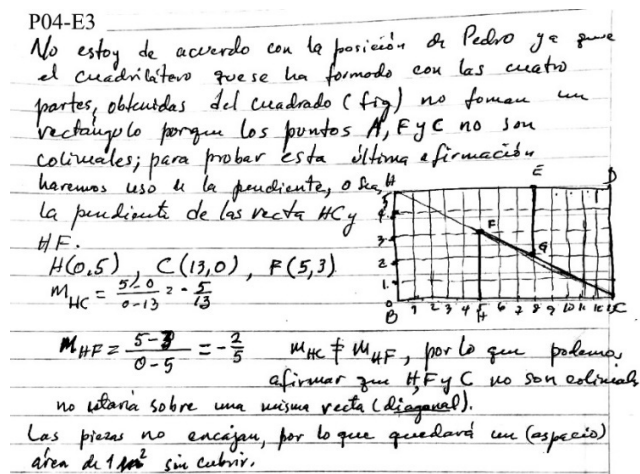 P04-E3
No estoy de acuerdo con la posición de Pedro ya que
el cuadrilátero que se ha formado con las cuatro
partes, obtenidas del cuadrado (fig) no foman un
rectángulo porque los puntos H, F y C no son
colineales; para probar esta última afirmación
haremos uso de la pendiente, o sea,
la pendiente de las recta HC y
HF.
H(0,5), C(13,0), F(5,3)
m_HC = \frac{5-0}{0-13} = -\frac{5}{13}
m_HF = \frac{5-3}{0-5} = -\frac{2}{5} m_HC ≠ m_HF, por lo que podemos
afirmar que H, F y C no son colineales
no estaría sobre una misma recta (diagonal).
Las piezas no encajan, por lo que quedará un (espacio)
área de 1 m² sin cubrir.
H E D
5
4
3 F
2 G
1
B 1 2 3 4 5 6 7 8 9 10 11 12 13 C
H